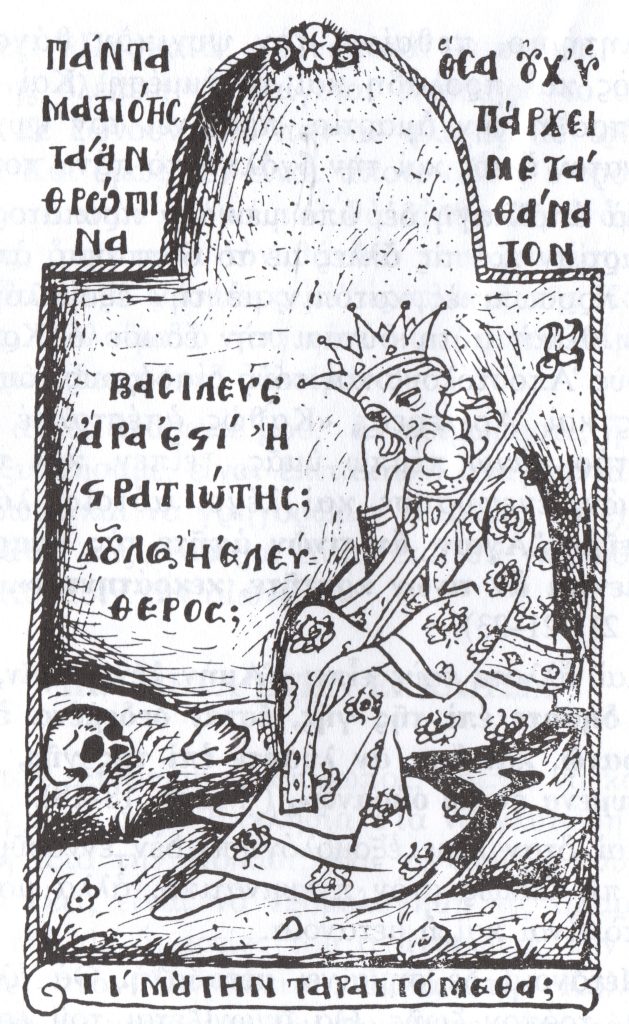 ΠΑΝΤΑ
ΜΑΤΑΙΟΤΗϹ
ΤΑ᾽ΑΝ
ΘΡΏΠΙ
ΝΑ
ὅϹΑ ȢΧ᾽Ὑ
ΠΆΡΧΕΙ
ΜΕΤᾺ
ΘΆΝΑ
ΤΟΝ
ΒΑϹΙΛΕΥϹ
ἌΡΑ ΕϚΙ Ἢ
ϚΡΑΤΙΏΤΗϹ;
ΔȢΛΟϹ Ἢ ΕΛΕΥ-
ΘΕΡΟϹ;
ΤΊ ΜΆΤΗΝ ΤΑΡΑΤΤΌΜΕΘΑ;